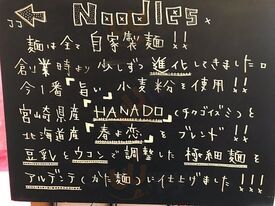 Noodles.
麺は全て 自家製麺!!
創業時より少しずつ進化してきました。
今1番旨い小麦粉を使用!!
宮崎県産『HANADO(チクゴイズミ)』と
北海道産『春よ恋』を ブレンド!!
豆乳とウコンで調整した極細麺を
アルデンテ(かた麺)に仕上げました!!!